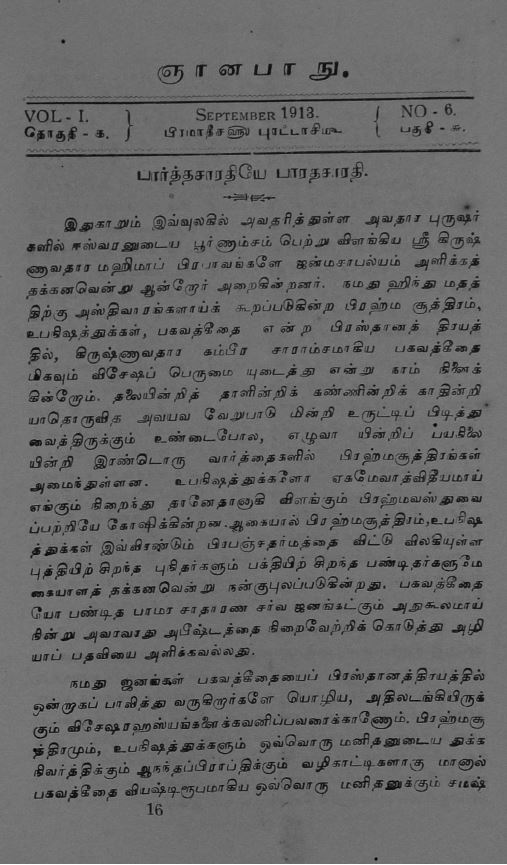 ஞானபாநு.
VOL - I. SEPTEMBER 1913. NO - 6.
தொகுதி - க. பிரமாதீசஹு புரட்டாசிமீ பகுதி - சு.
பார்த்தசாரதியே பாரதசாரதி.
இதுகாறும் இவ்வுலகில் அவதரித்துள்ள அவதார புருஷர்
களில் ஈஸ்வரனுடைய பூர்ணாம்சம் பெற்று விளங்கிய ஸ்ரீ கிருஷ்
ணாவதார மஹிமாப் பிரபாவங்களே ஜன்மசாபல்யம் அளிக்கத்
தக்கனவென்று ஆன்றோர் அறைகின்றனர். நமது ஹிந்து மதத்
திற்கு அஸ்திவாரங்களாய்க் கூறப்படுகின்ற பிரஹ்ம சூத்திரம்,
உபநிஷத்துக்கள், பகவத்கீதை என்ற பிரஸ்தானத் திரயத்
தில், கிருஷ்ணாவதார கம்பீர சாராம்சமாகிய பகவத்கீதை
மிகவும் விசேஷப் பெருமை யுடைத்து என்று நாம் நினைக்
கின்றோம். தலையின்றித் தாளின்றிக் கண்ணின்றிக் காதின்றி
யாதொருவித அவயவ வேறுபாடு மின்றி உருட்டிப் பிடித்து
வைத்திருக்கும் உண்டைபோல, எழுவா யின்றிப் பயநிலை
யின்றி இரண்டொரு வார்த்தைகளில் பிரஹ்மசூத்திரங்கள்
அமைந்துள்ளன. உபநிஷத்துக்களோ ஏகமேவாத்விதீயமாய்
எங்கும் நிறைந்து தானேதானாகி விளங்கும் பிரஹ்மவஸ்துவை
ப்பற்றியே கோஷிக்கின்றன.ஆகையால் பிரஹ்மசூத்திரம்,உபநிஷ
த்துக்கள் இவ்விரண்டும் பிரபஞ்சதர்மத்தை விட்டு விலகியுள்ள
புத்தியிற் சிறந்த புநிதர்களும் பக்தியிற் சிறந்த பண்டிதர்களுமே
கையாளத் தக்கனவென்று நன்குபுலப்படுகின்றது. பகவத்கீதை
யோ பண்டித பாமர சாதாரண சர்வ ஜனங்கட்கும் அநுகூலமாய்
நின்று அவரவரது அபீஷ்டத்தை நிறைவேற்றிக் கொடுத்து அழி
யாப் பதவியை அளிக்கவல்லது.
நமது ஜனங்கள் பகவத்கீதையைப் பிரஸ்தானத்திரயத்தில்
ஒன்றாகப் பாவித்து வருகிறார்களே யொழிய, அதிலடங்கியிருக்
கும் விசேஷரஹஸ்யங்களைக்கவனிப்பவரைக்காணோம். பிரஹ்மசூ
த்திரமும், உபநிஷத்துக்களும் ஒவ்வொரு மனிதனுடைய துக்க
நிவர்த்திக்கும் ஆநந்தப்பிராப்திக்கும் வழிகாட்டிகளாகு மானால்
பகவத்கீதை வியஷ்டிரூபமாகிய ஒவ்வொரு மனிதனுக்கும் சமஷ்
16